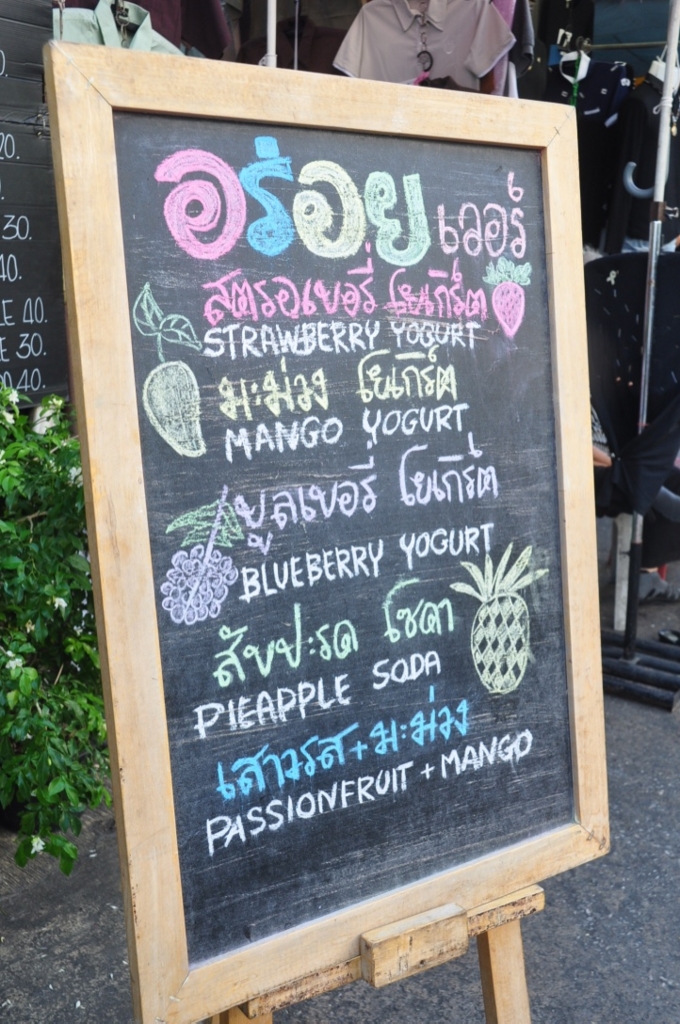 อร่อย เวอร์
สตรอเบอรี่ โยเกิร์ต
STRAWBERRY YOGURT
มะม่วง โยเกิร์ต
MANGO YOGURT
บูลเบอรี่ โยเกิร์ต
BLUEBERRY YOGURT
สับปะรด โซดา
PIEAPPLE SODA
เสาวรส+มะม่วง
PASSIONFRUIT + MANGO
20.
30.
40.
LE 40.
E 30.
40.